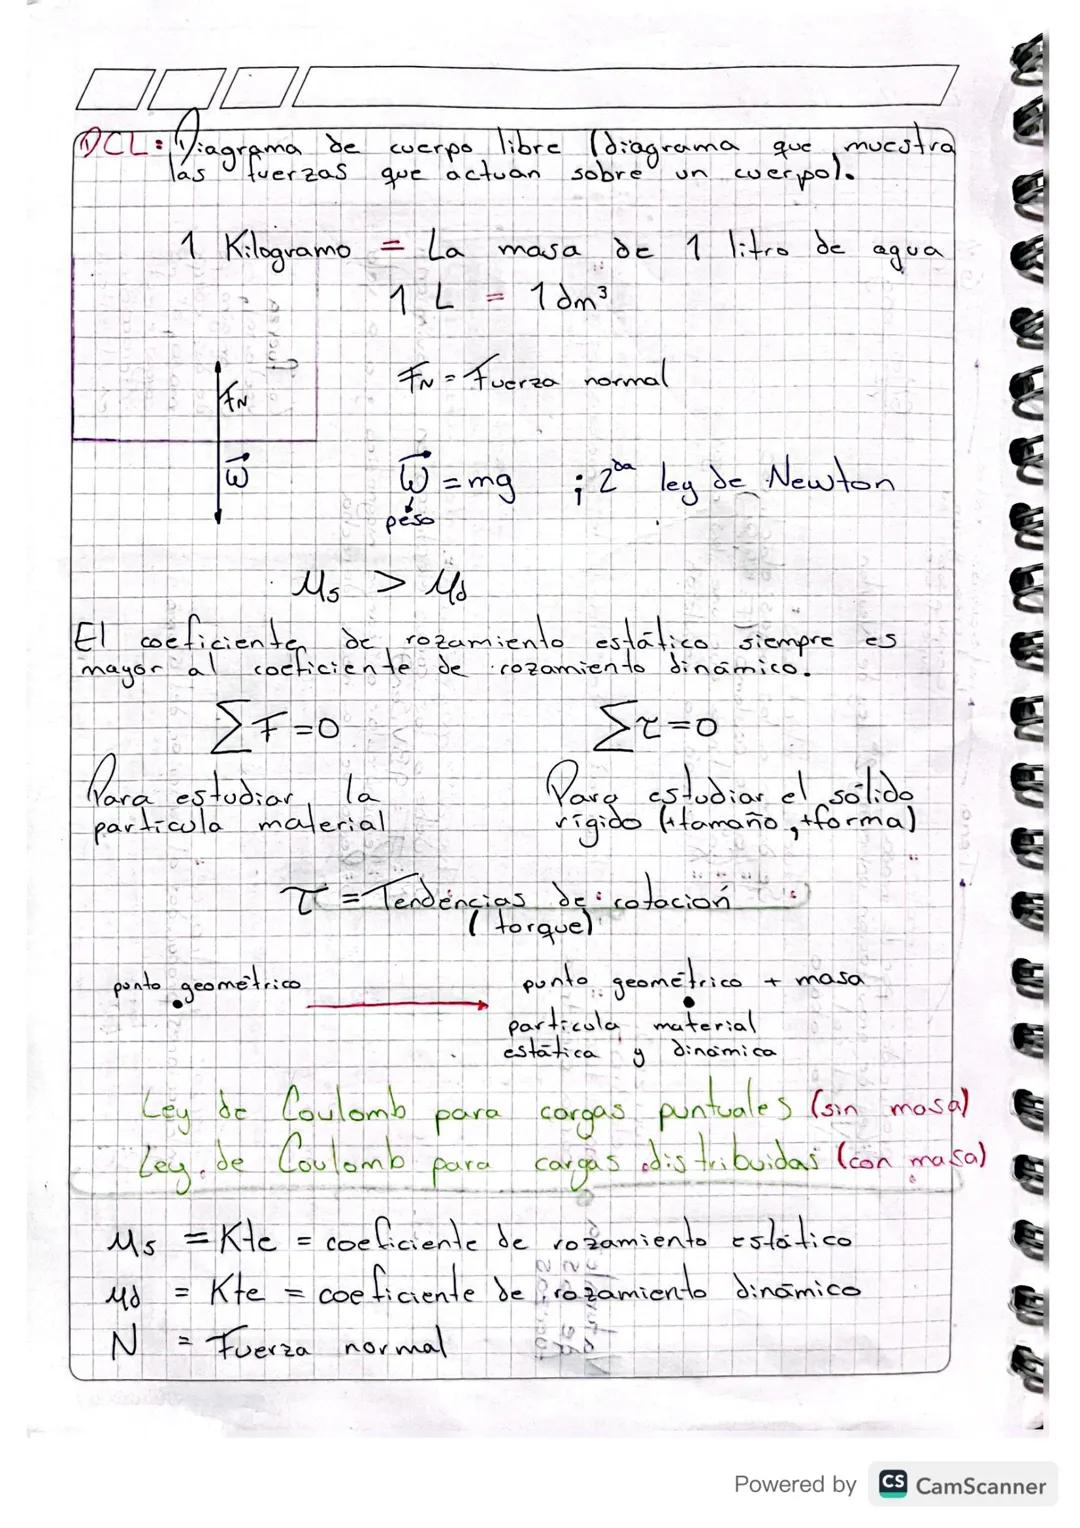 DCL: Diagrama de cuerpo libre (diagrama que muestra
las fuerzas que actuan sobre un cuerpo).
1 Kilogramo = La masa de 1 litro de agua
1 L = 1 dm³
FN = Fuerza normal
FN
w⃗
w⃗ = mg ; 2da ley de Newton
peso
μs > μd
El coeficiente de rozamiento estático siempre es
mayor al coeficiente de rozamiento dinámico.
∑F=0 ∑τ=0
Para estudiar la
partícula material
Para estudiar el sólido
rígido (+tamaño, +forma)
τ = Tendencias de rotación
(torque)
punto geométrico
punto geométrico + masa
partícula material
estática y dinámica
Ley de Coulomb para cargas puntuales (sin masa)
Ley de Coulomb para cargas distribuidas (con masa)
μs = Kte = coeficiente de rozamiento estático
μd = Kte = coeficiente de rozamiento dinámico
N = Fuerza normal
Powered by CS CamScanner